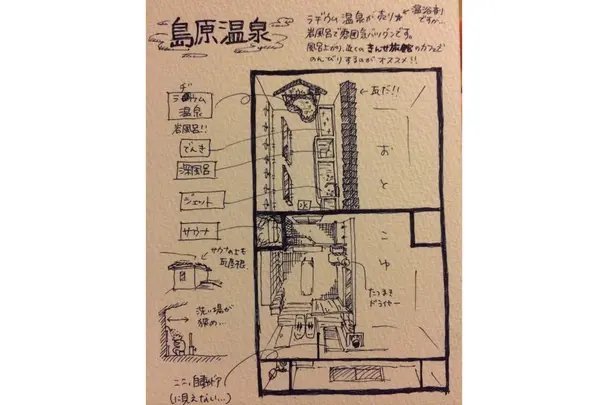 島原温泉
ラヂウム温泉が売り☆
温浴剤
ですが…
岩風呂で雰囲気バツグンです。
風呂上がり、近くのきんせ旅館のカフェで
のんびりするのがオススメ!!
ヂ
ラジウム
温泉
岩風呂!!
でんき
深風呂
ジェット
サウナ
←瓦だ!!
おとこゆ
水
サウナの上も
瓦屋根
たつまき
ドライヤー
洗い場が
狭め…
ここ、自動ドア
(に見えない…)